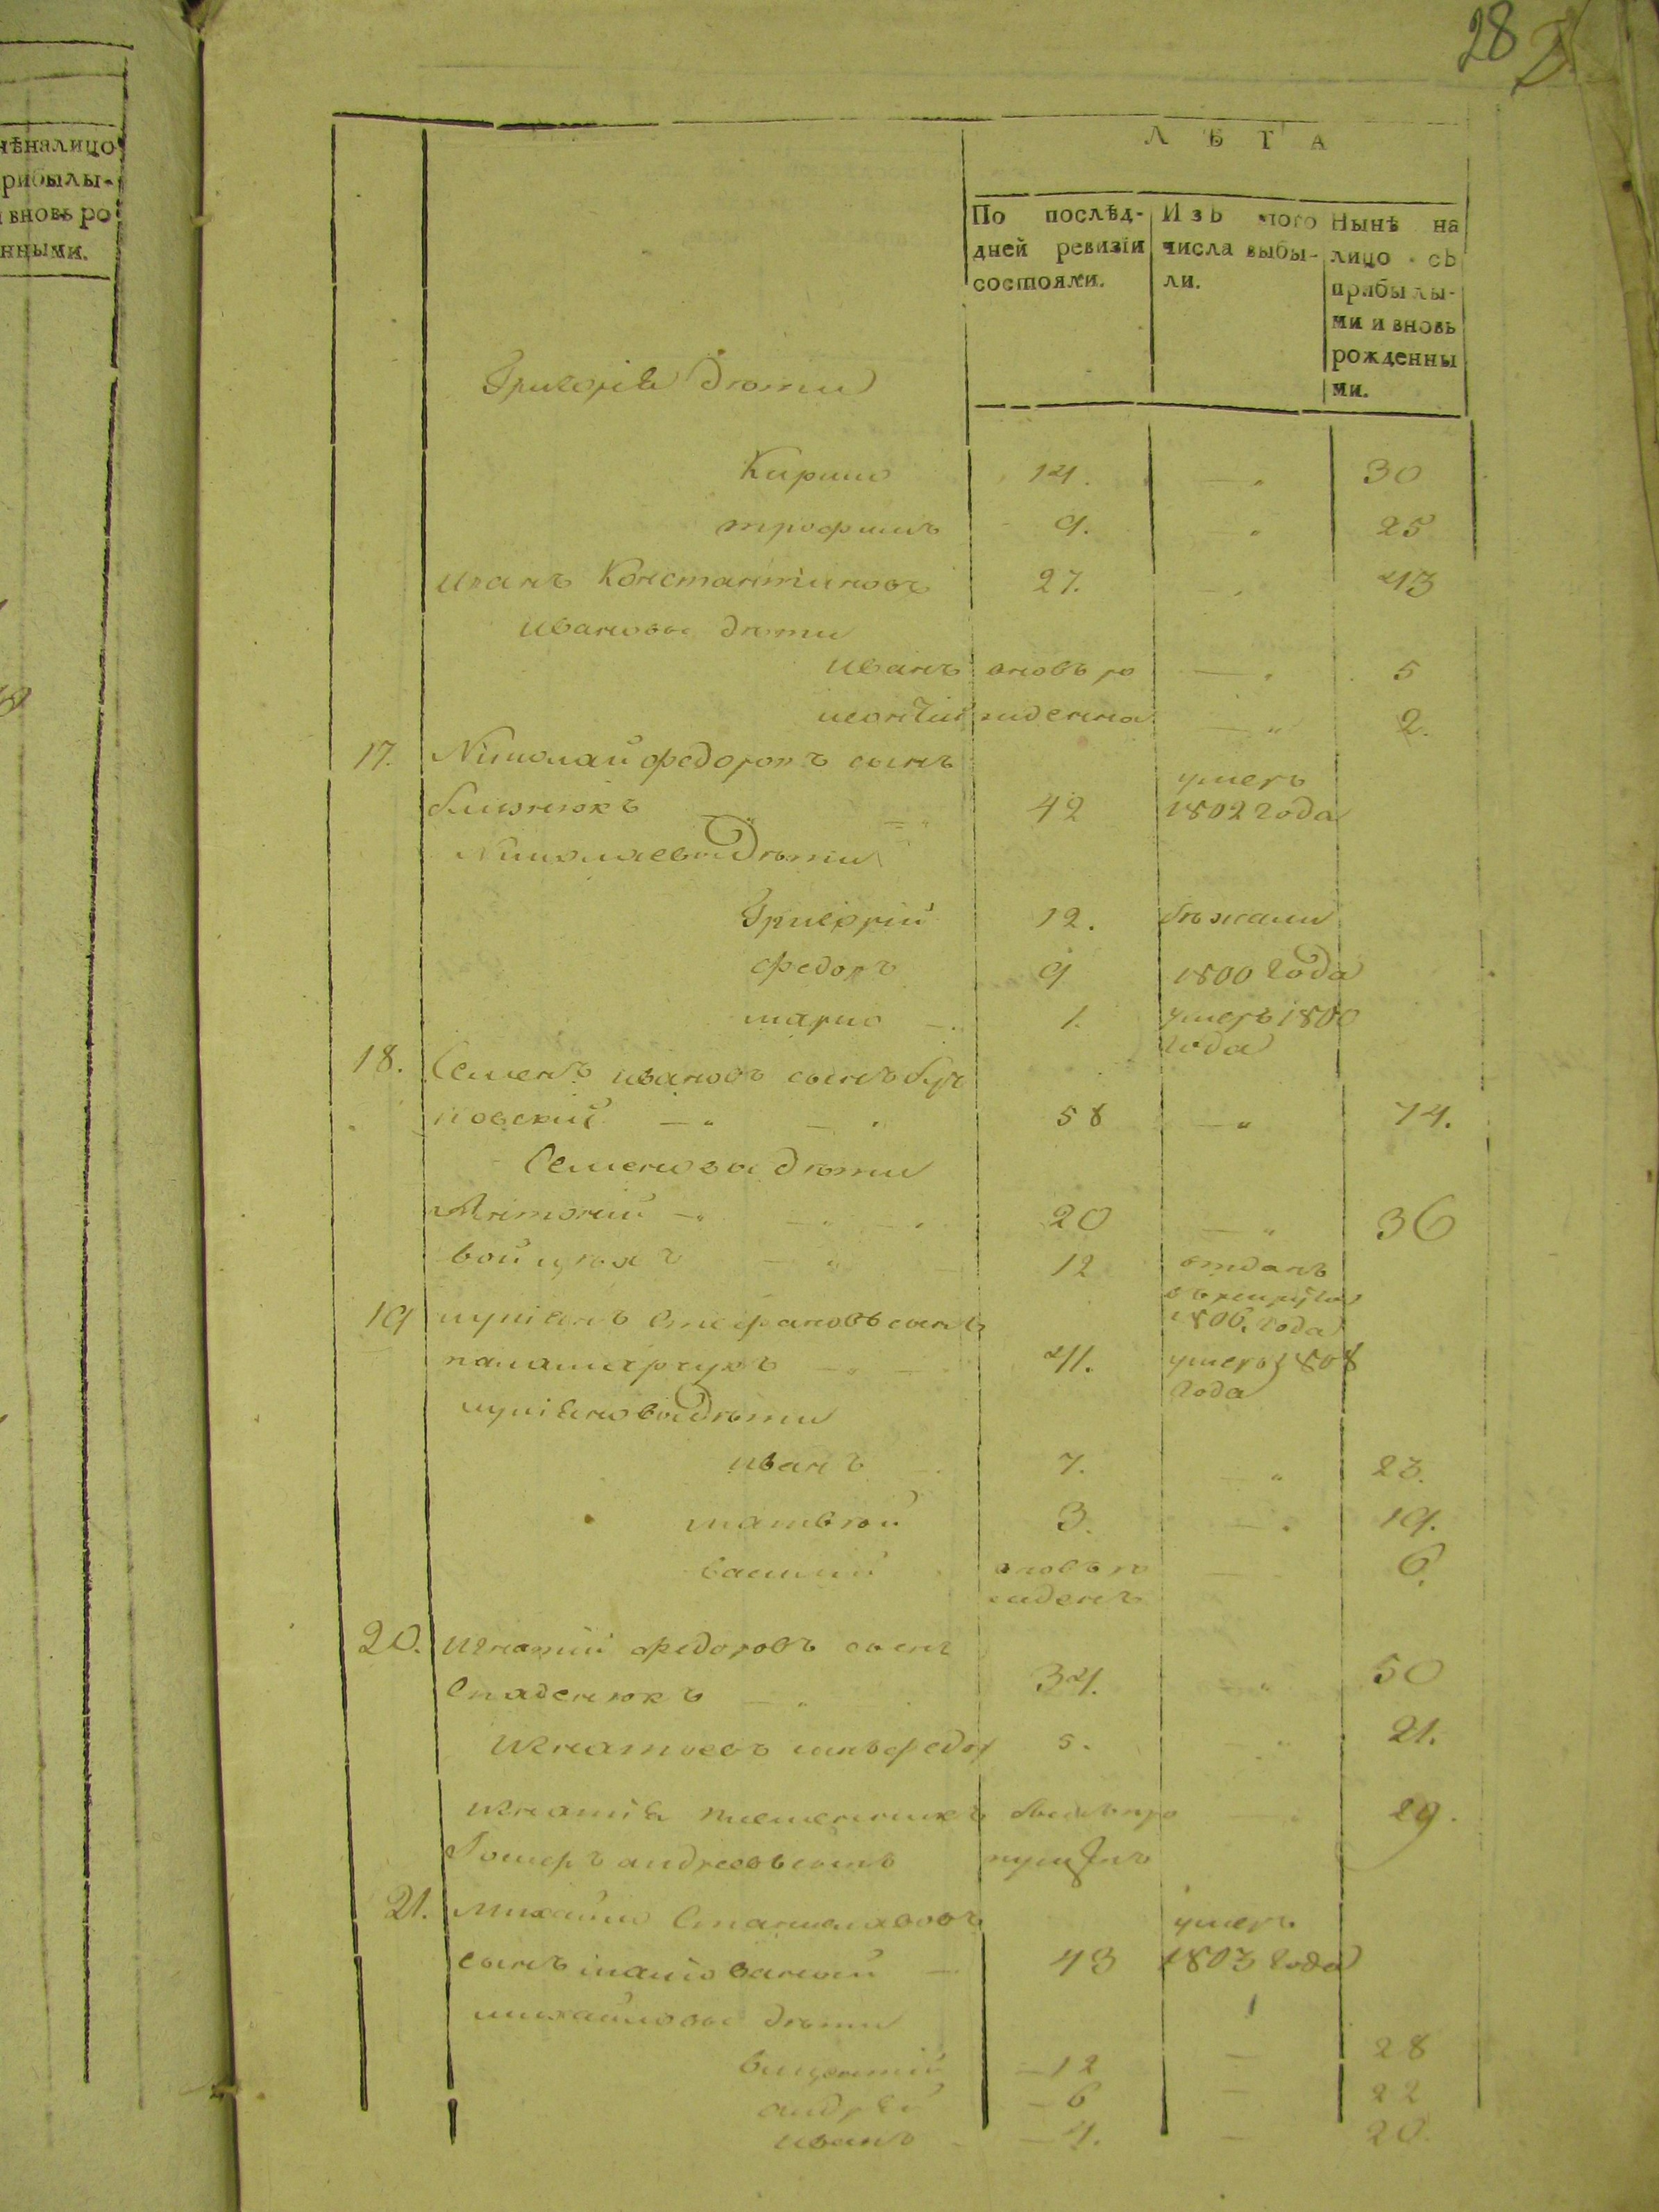 28
нѣналицо
рибылы-
вновь ро
нными.
ЛѢТА
По послѣд-
дней ревизіи
состояли.
Изъ того
числа выбы-
ли.
Нынѣ на
лицо съ
прибылы-
ми и вновь
рожденны
ми.
Григорія дѣти
Кирило 14. — „ 30
трофимъ 9. — „ 25
иванъ Константиновъ 27. — „ 43
ивановы дѣти
иванъ вновь ро — „ 5
жденна — „ 2.
17. Николай федоровъ сынъ умеръ
близнюкъ 42 1802 года
Николаевы дѣти
Григорій 12. бѣжали
федоръ 9 1800 года
марко 1. умеръ 1800
года
18. Семенъ ивановъ сынъ
новский — „ 58 — „ 74.
Семеновы дѣти
Антоній — „ 20 — „ 36
войцѣхъ — „ 12 отданъ
въ рекруты
1806. года
19 лупіанъ Стефановъ сынъ
паламарчукъ 41. умеръ 1808
года
лупіановы дѣти
иванъ 7. — „ 23.
матвѣй 3. — „ 19.
василий вновь ро — 6.
жденъ
20. игнатий федоровъ сынъ
34. — „ 50
игнатіевъ сынъ федор 5. — „ 21.
игнатія племенникъ былъ про — 29.
андреевъ сынъ пущенъ
21. михайло Станиславовъ умеръ
сынъ 43 1803 года
михайловы дѣти
викентий — 12 — 28
андрей — 6 — 22
иванъ — 4. — 20.